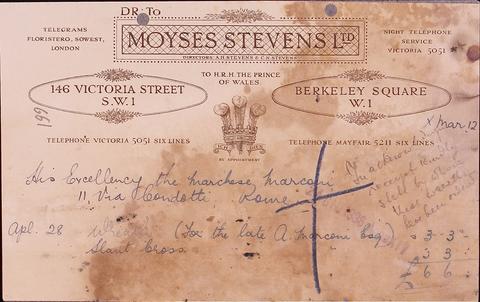 DR. To
TELEGRAMS
FLORISTERO, SOWEST,
LONDON
MOYSES STEVENS LTD
DIRECTORS: A.H. STEVENS & C.N. STEVENS
NIGHT TELEPHONE
SERVICE
VICTORIA 5051
TO H.R.H. THE PRINCE
OF WALES
146 VICTORIA STREET
S.W.1
BERKELEY SQUARE
W.1
199
BY APPOINTMENT
TELEPHONE VICTORIA 5051 SIX LINES
TELEPHONE MAYFAIR 5211 SIX LINES
x Mar. 12
His Excellency the Marchese Marconi
11, Via Condotti Rome
Apl. 28 Wreath (For the late A. Marconi Esq.) 3 3
Slant Cross 3 3
£ 6 6